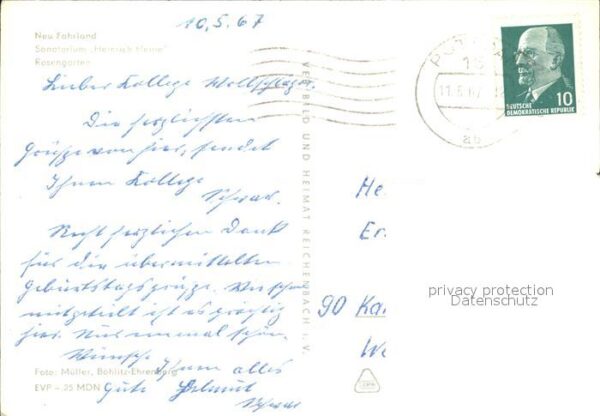 10.5.67
Neu Fahrland
Sanatorium „Heinrich Heine"
Rosengarten
Lieber Kollege
Die herzlichsten
Grüsse von hier, sendet
Ihnen Kollege
Recht herzlichen Dank
für die übermittelten
Geburtstagsgrüsse. Wie schon
mitgeteilt ist es
hier. Nun einmal schön.
Wünsche
Ihnen alles
Gute Helmut
Foto: Müller, Böhlitz-Ehrenberg
EVP – 25 MDN
VERLAG BILD UND HEIMAT REICHENBACH i. V.
POTSDAM
15
11.5.67
ab
10
DEUTSCHE
DEMOKRATISCHE REPUBLIK
He
Er
90 Kar
We
privacy protection
Datenschutz